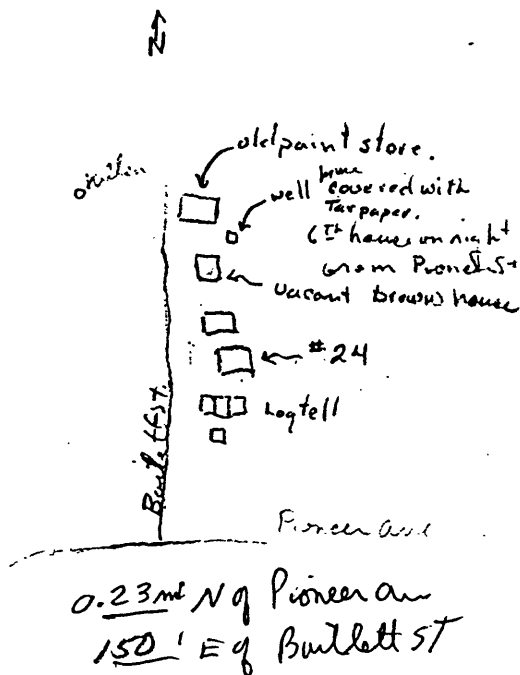 N
old paint store.
well house covered with
Tarpaper.
6th house on right
from Pioneer St
vacant brown house
#24
Bartlett St.
Pioneer Ave
0.23 mi N of Pioneer Ave
150' E of Bartlett ST